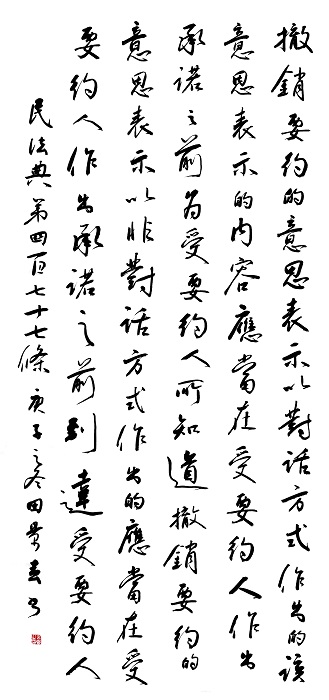 撤銷要約的意思表示以對話方式作出的該
意思表示的内容應當在受要約人作出
承諾之前為受要約人所知道撤銷要約的
意思表示以非對話方式作出的應當在受
要約人作出承諾之前到達受要約人
民法典第四百七十七條 庚子之冬田景書